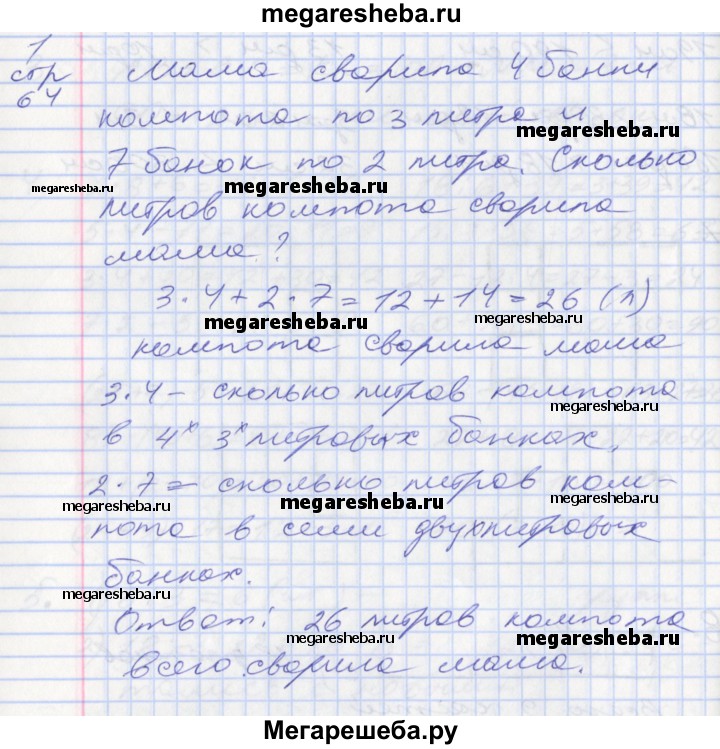 megaresheba.ru
1
стр
64
Мама сварила 4 банки
компота по 3 литра и
megaresheba.ru
7 банок по 2 литра. Сколько
megaresheba.ru
megaresheba.ru
литров компота сварила
мама?
3 · 4 + 2 · 7 = 12 + 14 = 26 (л)
megaresheba.ru
megaresheba.ru
компота сварила мама
3 · 4 – сколько литров компота
megaresheba.ru
в 4х 3х литровых банках.
2 · 7 – сколько литров ком-
megaresheba.ru
megaresheba.ru
megaresheba.ru
пота в семи двухлитровых
банках.
megaresheba.ru
Ответ: 26 литров компота
megaresheba.ru
megaresheba.ru
всего сварила мама.
Мегарешеба.ру